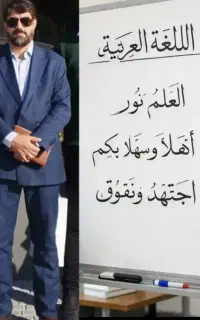 الللغَة العربيَة
العَلمُ نُور
أهْلاً وَسهْلًا بكِم
اجتَهَدُ وَنَقوُق